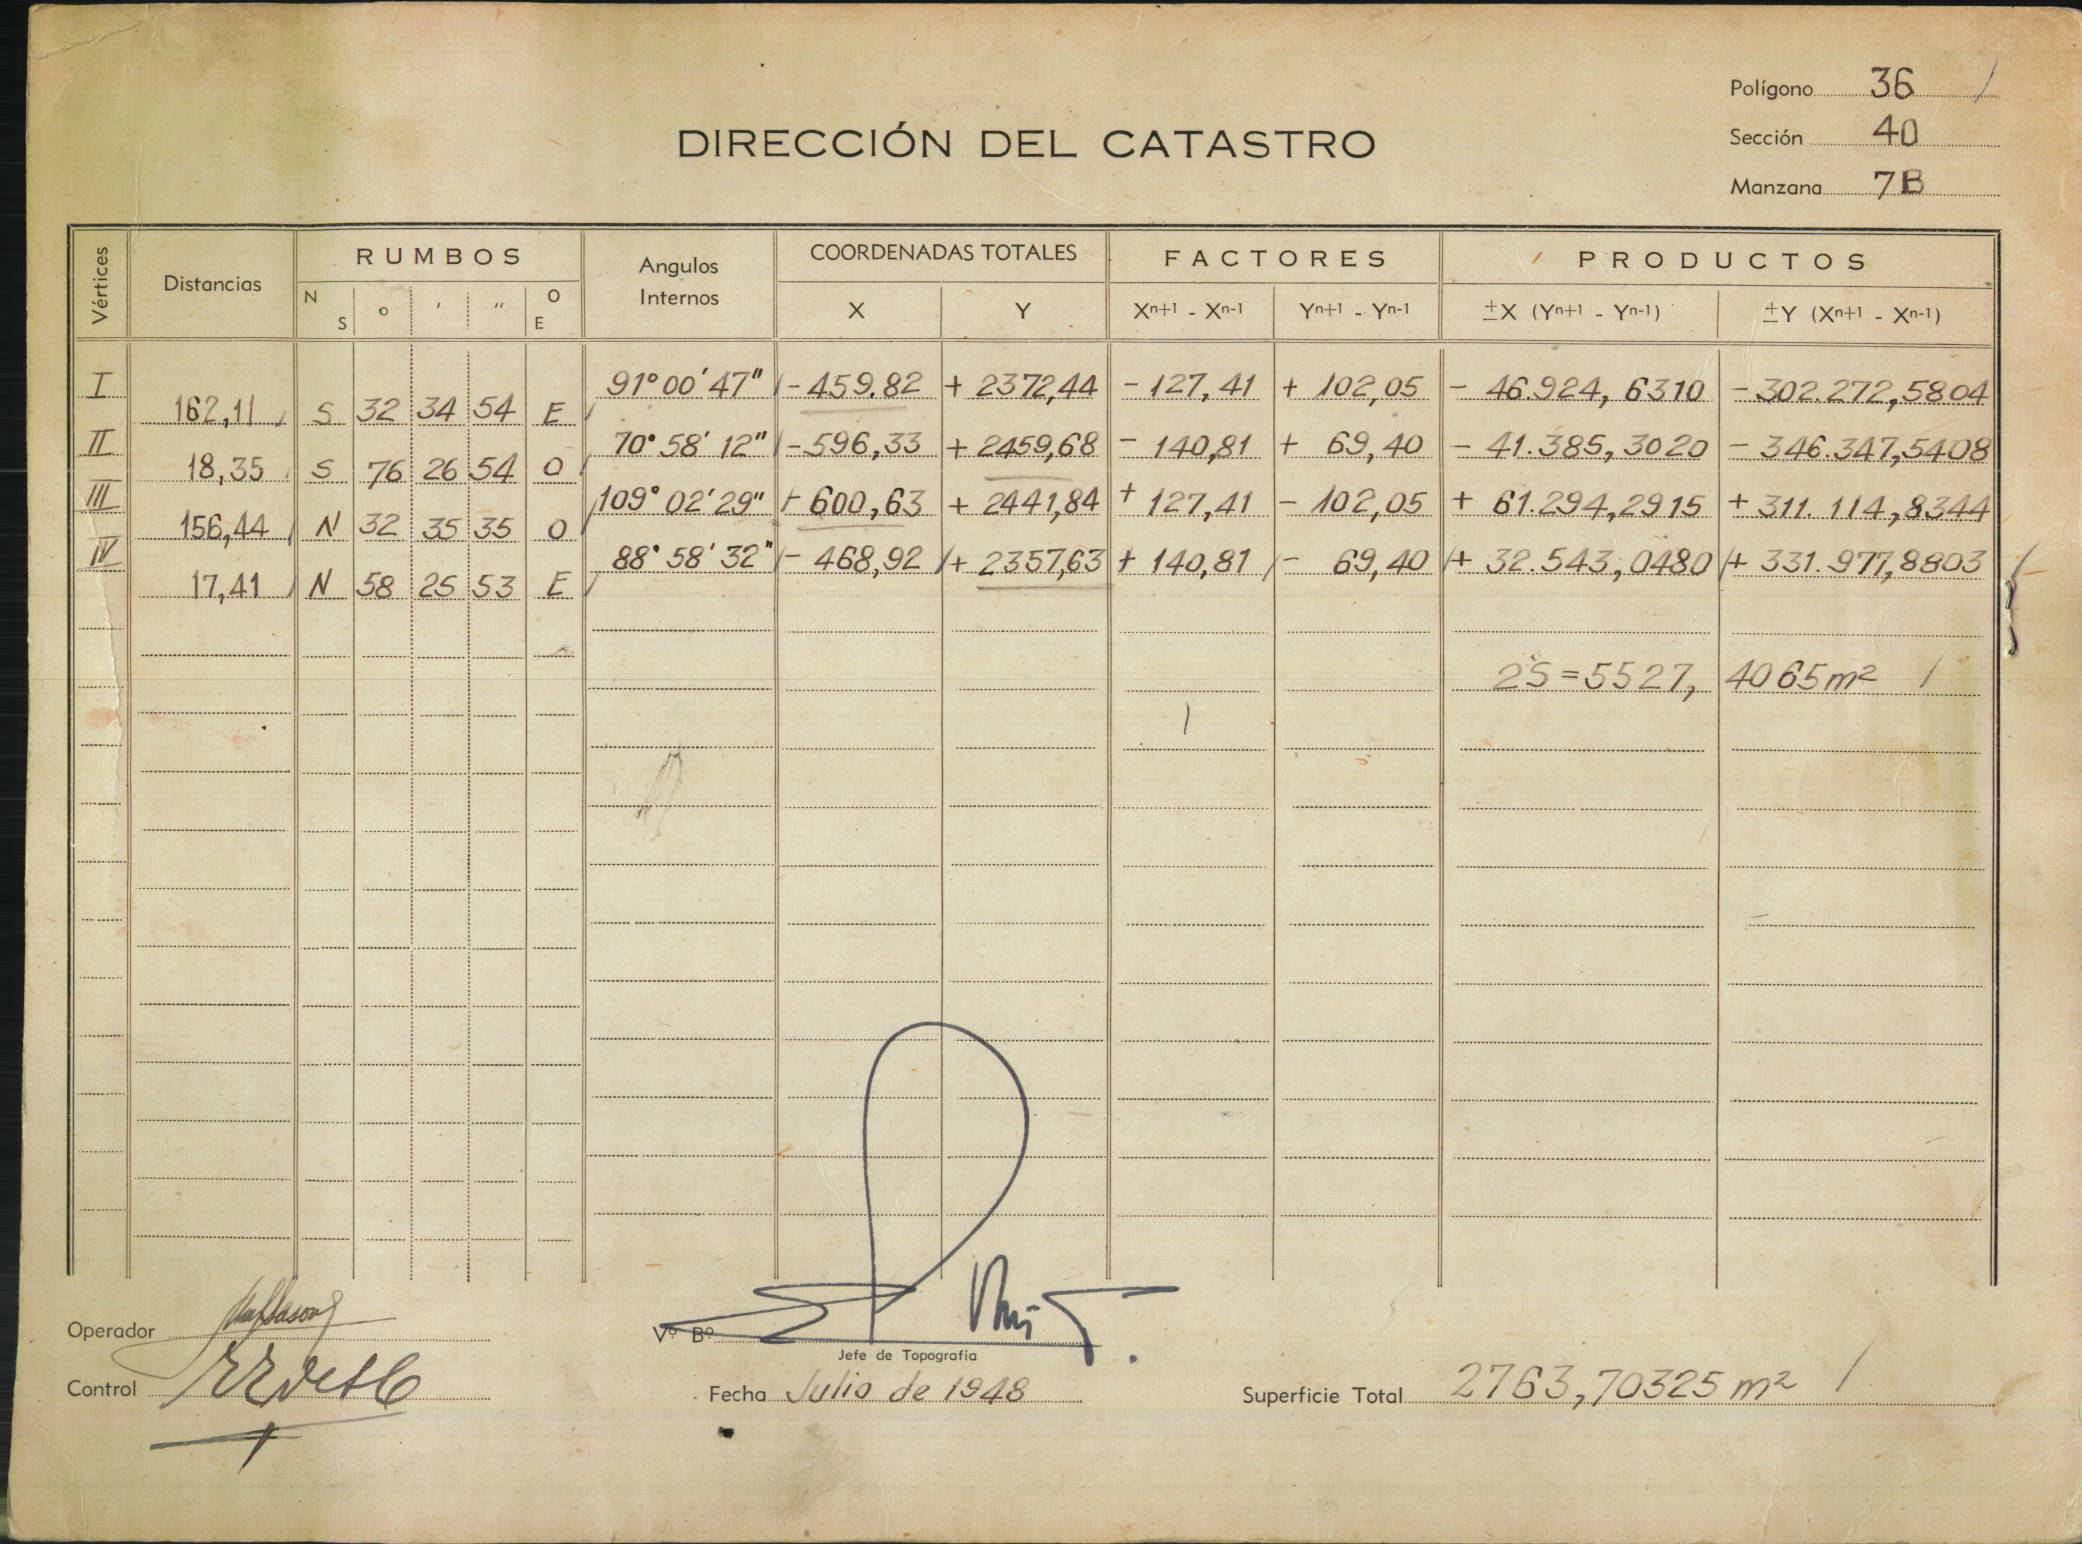 Polígono 36
Sección 40
Manzana 7B
DIRECCIÓN DEL CATASTRO
Vértices Distancias RUMBOS Angulos Internos COORDENADAS TOTALES FACTORES PRODUCTOS
N S ° ' " O E X Y Xn+1 - Xn-1 Yn+1 - Yn-1 ±X (Yn+1 - Yn-1) ±Y (Xn+1 - Xn-1)
I 91°00'47" - 459.82 + 2372,44 - 127,41 + 102,05 - 46.924,6310 - 302.272,5804
162,11 S 32 34 54 E
II 70°58'12" - 596,33 + 2459,68 - 140,81 + 69,40 - 41.385,3020 - 346.347,5408
18,35 S 76 26 54 O
III 109°02'29" + 600,63 + 2441,84 + 127,41 - 102,05 + 61.294,2915 + 311.114,8344
156,44 N 32 35 35 O
IV 88°58'32" - 468,92 + 2357,63 + 140,81 - 69,40 + 32.543,0480 + 331.977,8803
17,41 N 58 25 53 E
2S = 5527,4065 m²
Operador
Vº Bº
Jefe de Topografía
Control
Fecha Julio de 1948
Superficie Total 2763,70325 m²